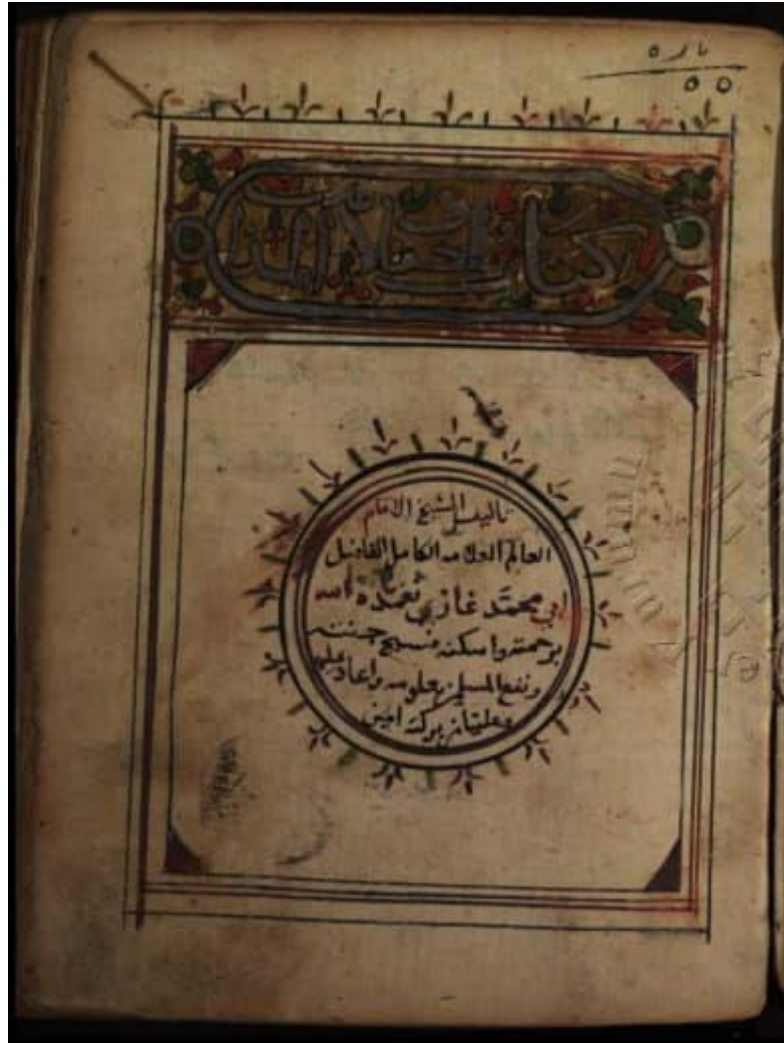 باره
٥٥
كتاب اختلاف المذاهب
تاليف الشيخ الامام
العالم العلامه الكامل الفاضل
ابي محمد غازي تغمده الله
برحمته واسكنه فسيح جنته
ونفع المسلمين بعلومه واعاد على
وعلينا من بركته امين